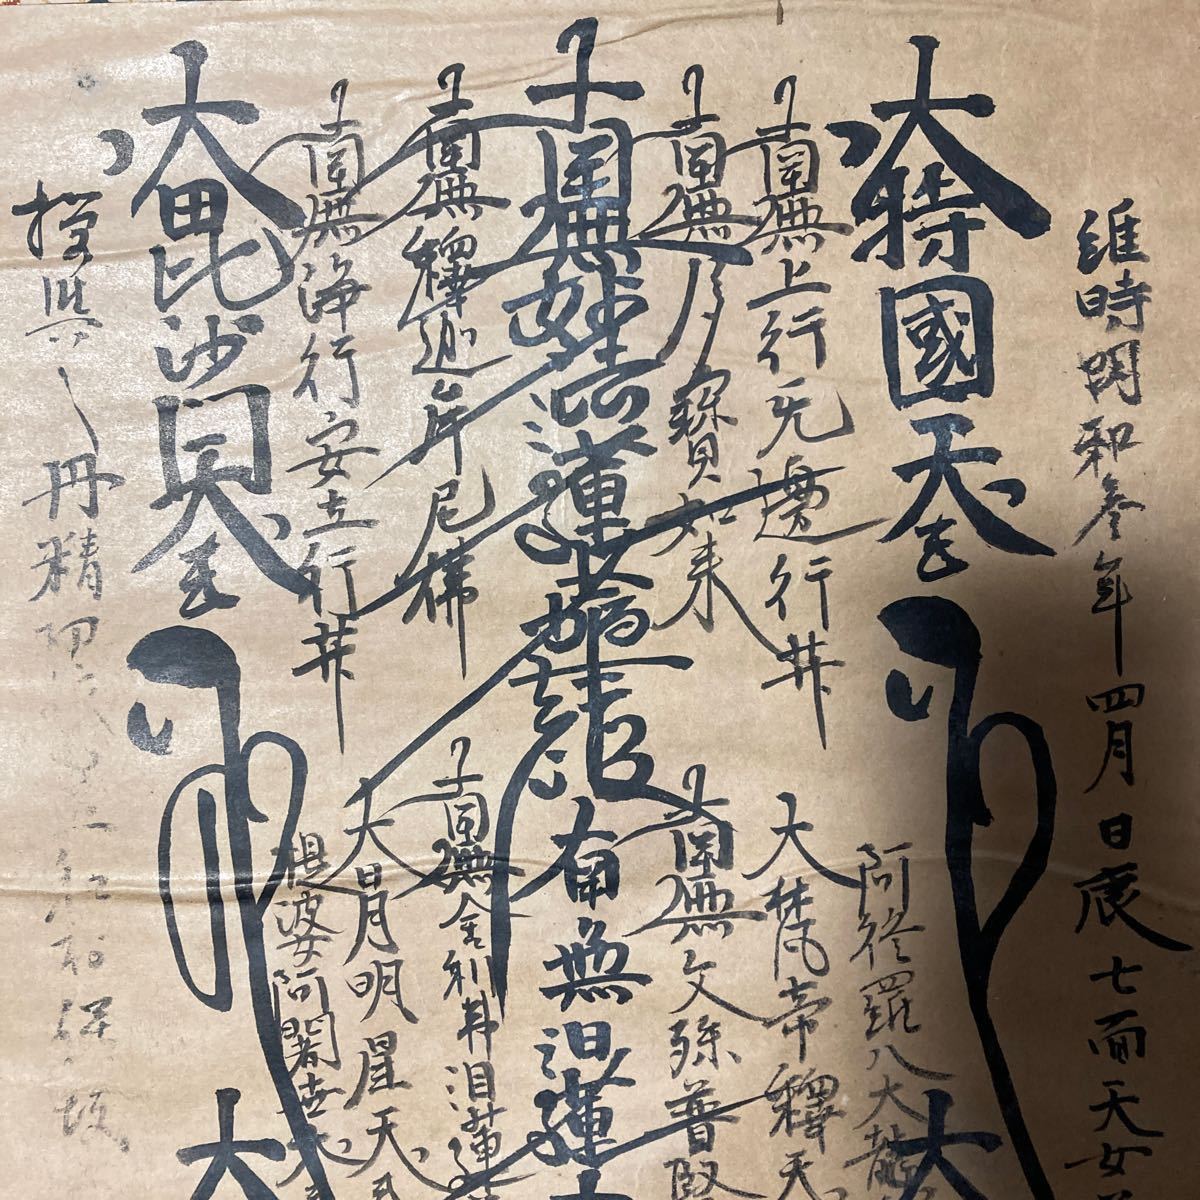 維時明和参年四月日
七面天女
大持國天王
南無上行无邊行菩
南無多寳如来
南無妙法蓮華経
南無釋迦牟尼佛
南無浄行安立行菩
大毘沙門天王
阿修羅八大龍
大梵帝釋天
南無文殊普賢
南無日蓮
南無舎利弗
大日月明星天
提婆阿闍世大
丹精
大
大